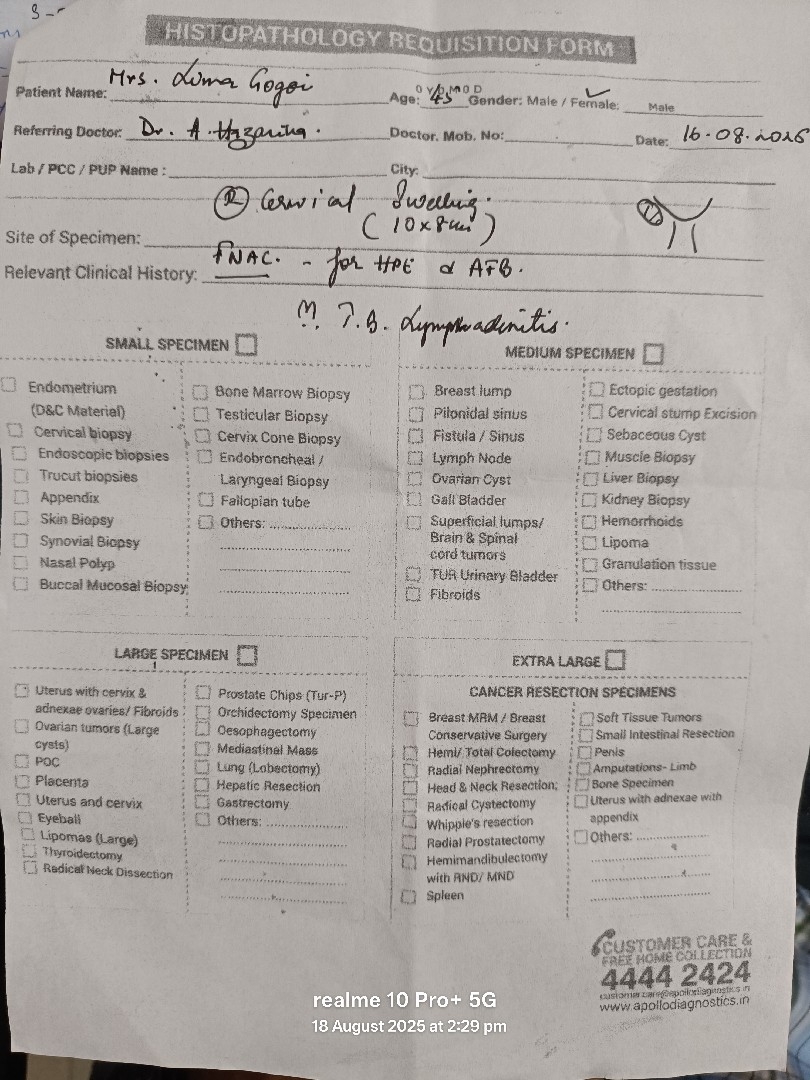 HISTOPATHOLOGY REQUISITION FORM
Patient Name: Mrs. Luma Gogoi Age: 45 Gender: Male / Female: Male
Y M O D
Referring Doctor: Dr. A. Hazarika. Doctor. Mob. No: Date: 16-08-2025
Lab / PCC / PUP Name : City:
Ⓡ Cervical Swelling.
(10x8cm)
Site of Specimen:
Relevant Clinical History: FNAC. - for HPE & AFB.
T.B. Lymphadenitis.
SMALL SPECIMEN
Endometrium
(D&C Material)
Cervical biopsy
Endoscopic biopsies
Trucut biopsies
Appendix
Skin Biopsy
Synovial Biopsy
Nasal Polyp
Buccal Mucosal Biopsy
Bone Marrow Biopsy
Testicular Biopsy
Cervix Cone Biopsy
Endobroncheal /
Laryngeal Biopsy
Fallopian tube
Others: ....................
MEDIUM SPECIMEN
Breast lump
Pilonidal sinus
Fistula / Sinus
Lymph Node
Ovarian Cyst
Gall Bladder
Superficial lumps/
Brain & Spinal
cord tumors
TUR Urinary Bladder
Fibroids
Ectopic gestation
Cervical stump Excision
Sebaceous Cyst
Muscle Biopsy
Liver Biopsy
Kidney Biopsy
Hemorrhoids
Lipoma
Granulation tissue
Others: ....................
LARGE SPECIMEN
Uterus with cervix &
adnexae ovaries/ Fibroids
Ovarian tumors (Large
cysts)
POC
Placenta
Uterus and cervix
Eyeball
Lipomas (Large)
Thyroidectomy
Radical Neck Dissection
Prostate Chips (Tur-P)
Orchidectomy Specimen
Oesophagectomy
Mediastinal Mass
Lung (Lobectomy)
Hepatic Resection
Gastrectomy
Others: ....................
EXTRA LARGE
CANCER RESECTION SPECIMENS
Breast MRM / Breast
Conservative Surgery
Hemi/ Total Colectomy
Radial Nephrectomy
Head & Neck Resection;
Radical Cystectomy
Whipple's resection
Radial Prostatectomy
Hemimandibulectomy
with RND/ MND
Spleen
Soft Tissue Tumors
Small Intestinal Resection
Penis
Amputations- Limb
Bone Specimen
Uterus with adnexae with
appendix
Others: ..................
CUSTOMER CARE &
FREE HOME COLLECTION
4444 2424
customer.care@apollodiagnostics.in
www.apollodiagnostics.in
realme 10 Pro+ 5G
18 August 2025 at 2:29 pm